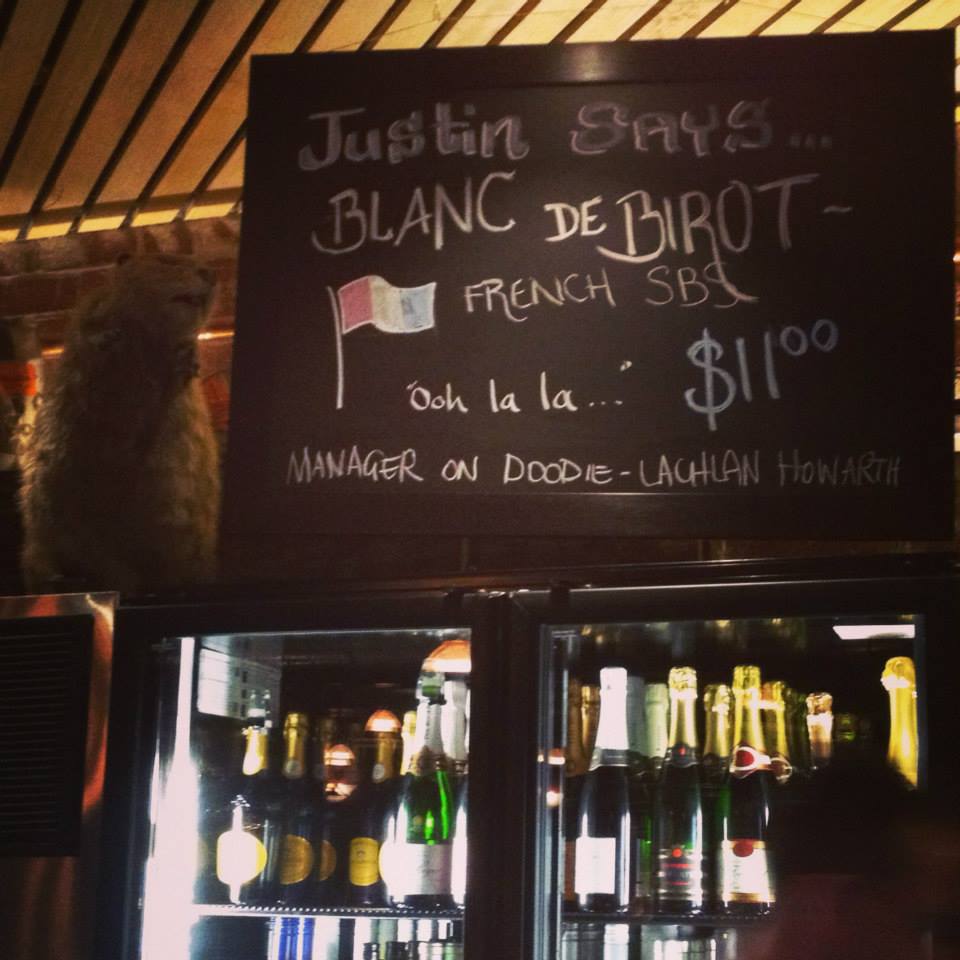 Justin SAYS...
BLANC DE BIROT ~
FRENCH SBS
"Ooh la la..." $11.00
MANAGER ON DOODIE - LACHLAN HOWARTH